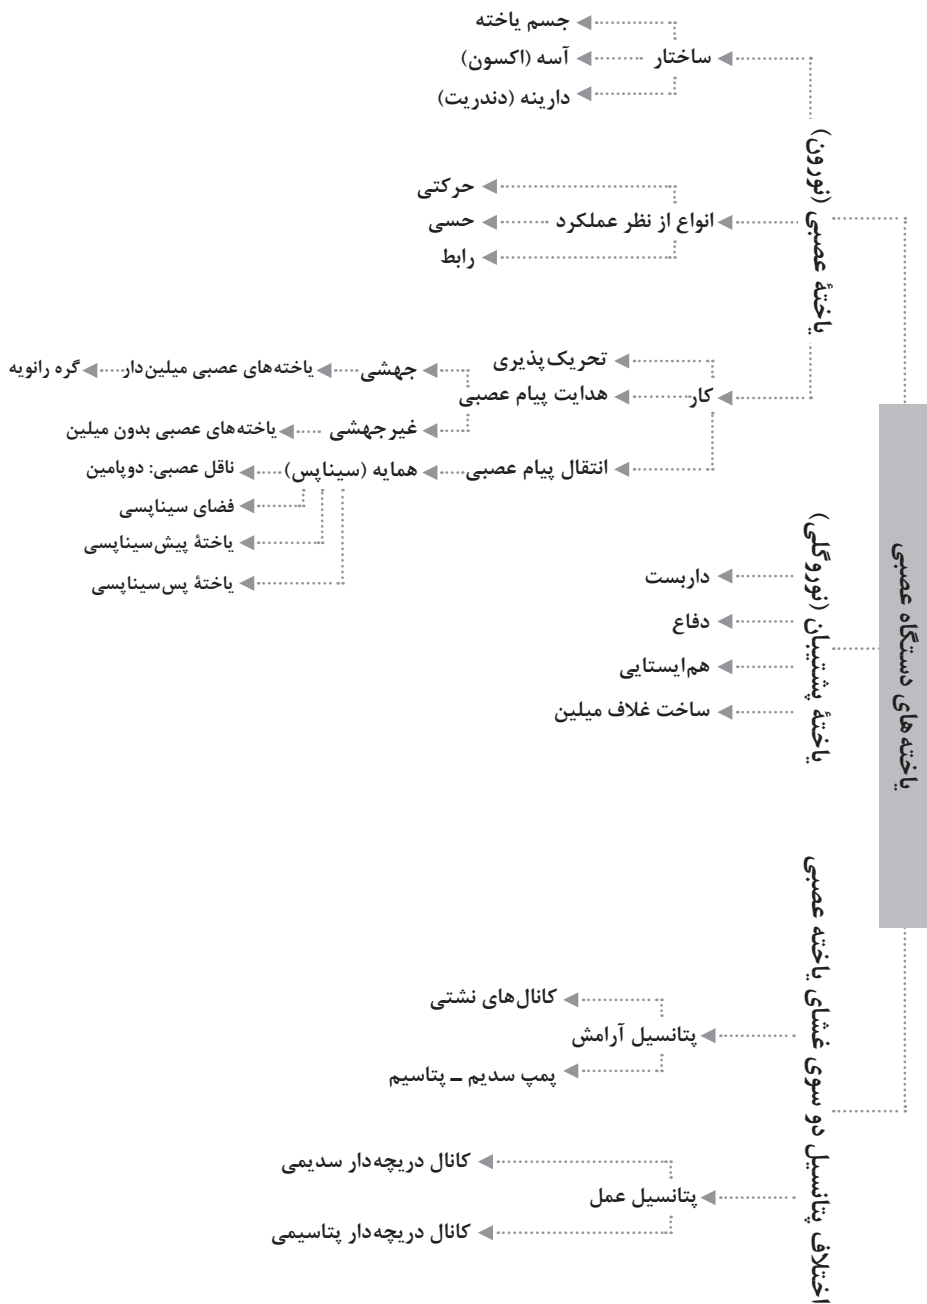 یاخته‌های دستگاه عصبی
یاختهٔ عصبی (نورون)
ساختار
جسم یاخته
آسه (اکسون)
دارینه (دندریت)
انواع از نظر عملکرد
حرکتی
حسی
رابط
کار
تحریک‌پذیری
هدایت پیام عصبی
جهشی
یاخته‌های عصبی میلین‌دار
گره رانویه
غیرجهشی
یاخته‌های عصبی بدون میلین
انتقال پیام عصبی
همایه (سیناپس)
ناقل عصبی: دوپامین
فضای سیناپسی
یاختهٔ پیش‌سیناپسی
یاختهٔ پس‌سیناپسی
یاختهٔ پشتیبان (نوروگلی)
داربست
دفاع
هم‌ایستایی
ساخت غلاف میلین
اختلاف پتانسیل دو سوی غشای یاخته عصبی
پتانسیل آرامش
کانال‌های نشتی
پمپ سدیم ـ پتاسیم
پتانسیل عمل
کانال دریچه‌دار سدیمی
کانال دریچه‌دار پتاسیمی